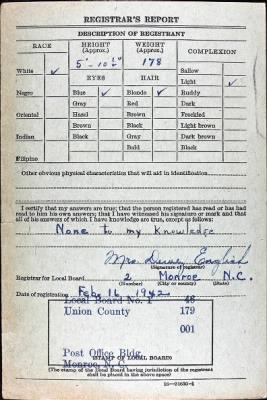 REGISTRAR'S REPORT
DESCRIPTION OF REGISTRANT
RACE
HEIGHT
(Approx.)
WEIGHT
(Approx.)
COMPLEXION
5'-10½"
178
White ✓
Sallow
EYES
HAIR
Light ✓
Negro
Blue ✓
Blonde ✓
Ruddy
Gray
Red
Dark
Oriental
Hazel
Brown
Freckled
Brown
Black
Light brown
Indian
Black
Gray
Dark brown
Bald
Black
Filipino
Other obvious physical characteristics that will aid in identification
I certify that my answers are true; that the person registered has read or has had
read to him his own answers; that I have witnessed his signature or mark and that
all of his answers of which I have knowledge are true, except as follows:
None to my knowledge
Mrs. Dewey English
(Signature of registrar)
Registrar for Local Board 2 Monroe N.C.
(Number) (City or county) (State)
Date of registration Feb. 16, 1942
Local Board No. 1 48
Union County 179
001
Post Office Bldg.
Monroe, N.C.
(STAMP OF LOCAL BOARD)
(The stamp of the Local Board having jurisdiction of the registrant
shall be placed in the above space)
16-21630-1